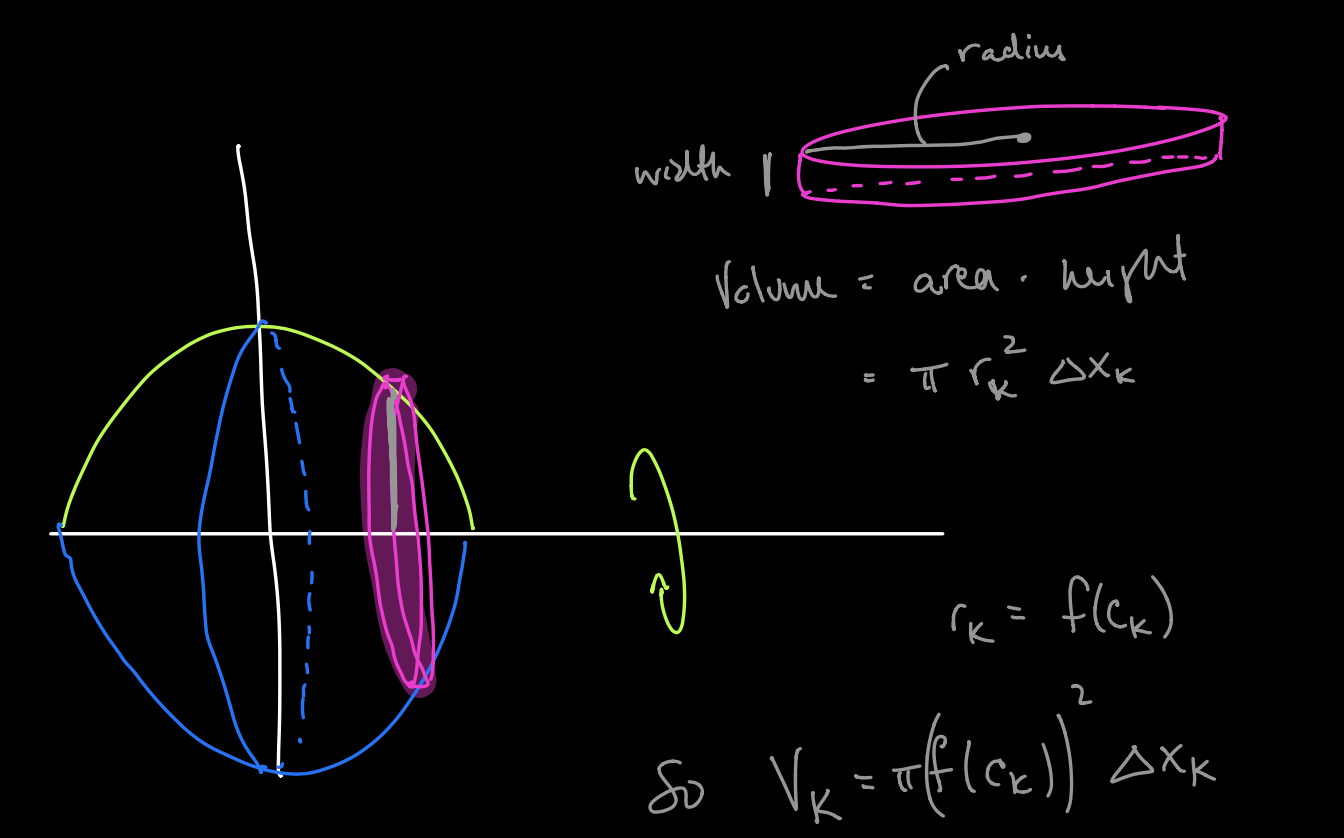 radius
width
Volume = area · height
= π r_K² Δx_K
r_K = f(c_K)
So V_K = π(f(c_K))² Δx_K